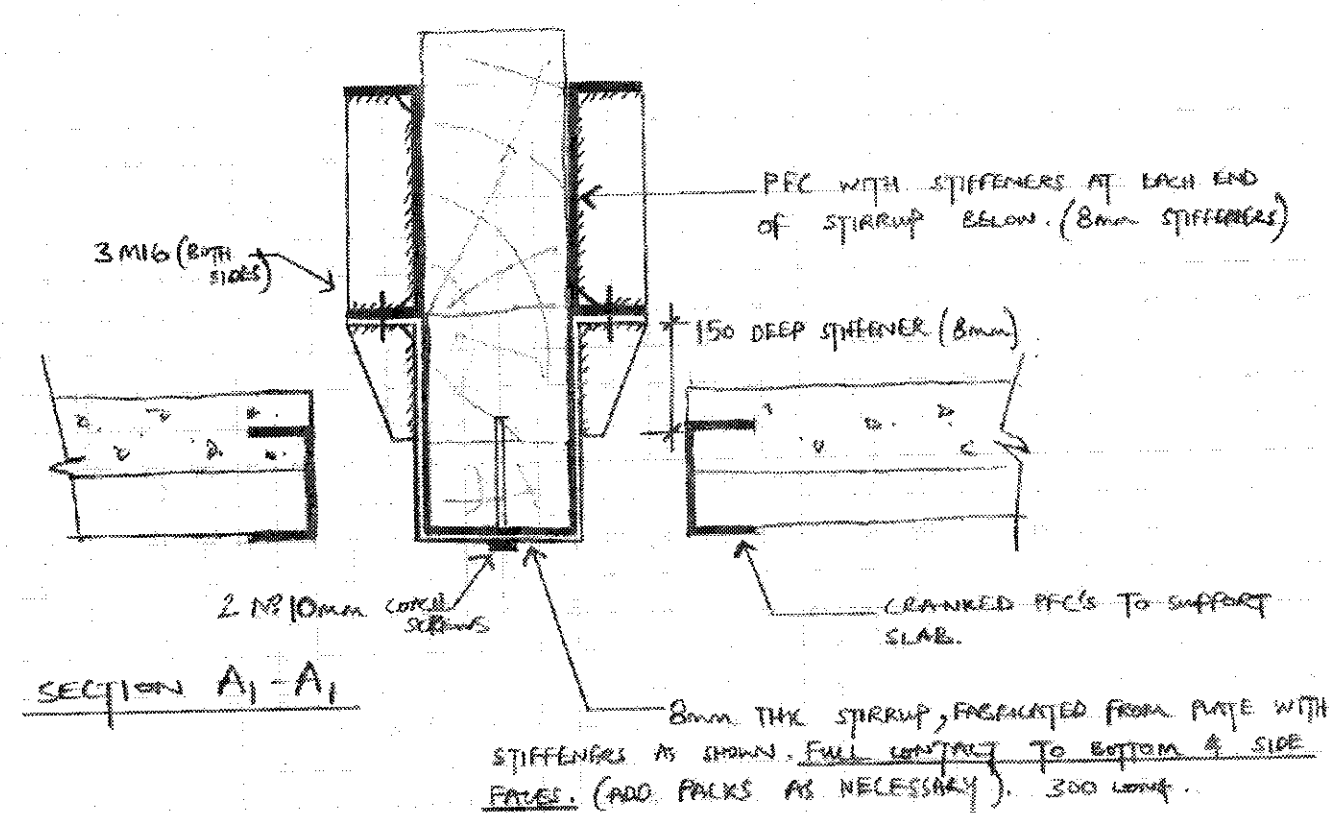 PFC WITH STIFFENERS AT EACH END
OF STIRRUP BELOW. (8mm STIFFENERS)
3 M16 (BOTH
SIDES)
150 DEEP STIFFENER (8mm)
2 Nº 10mm COACH
SCREWS
CRANKED PFC'S TO SUPPORT
SLAB.
SECTION A1-A1
8mm THK STIRRUP, FABRICATED FROM PLATE WITH
STIFFENERS AS SHOWN. FULL CONTACT TO BOTTOM & SIDE
FACES. (ADD PACKS AS NECESSARY). 300 LONG.